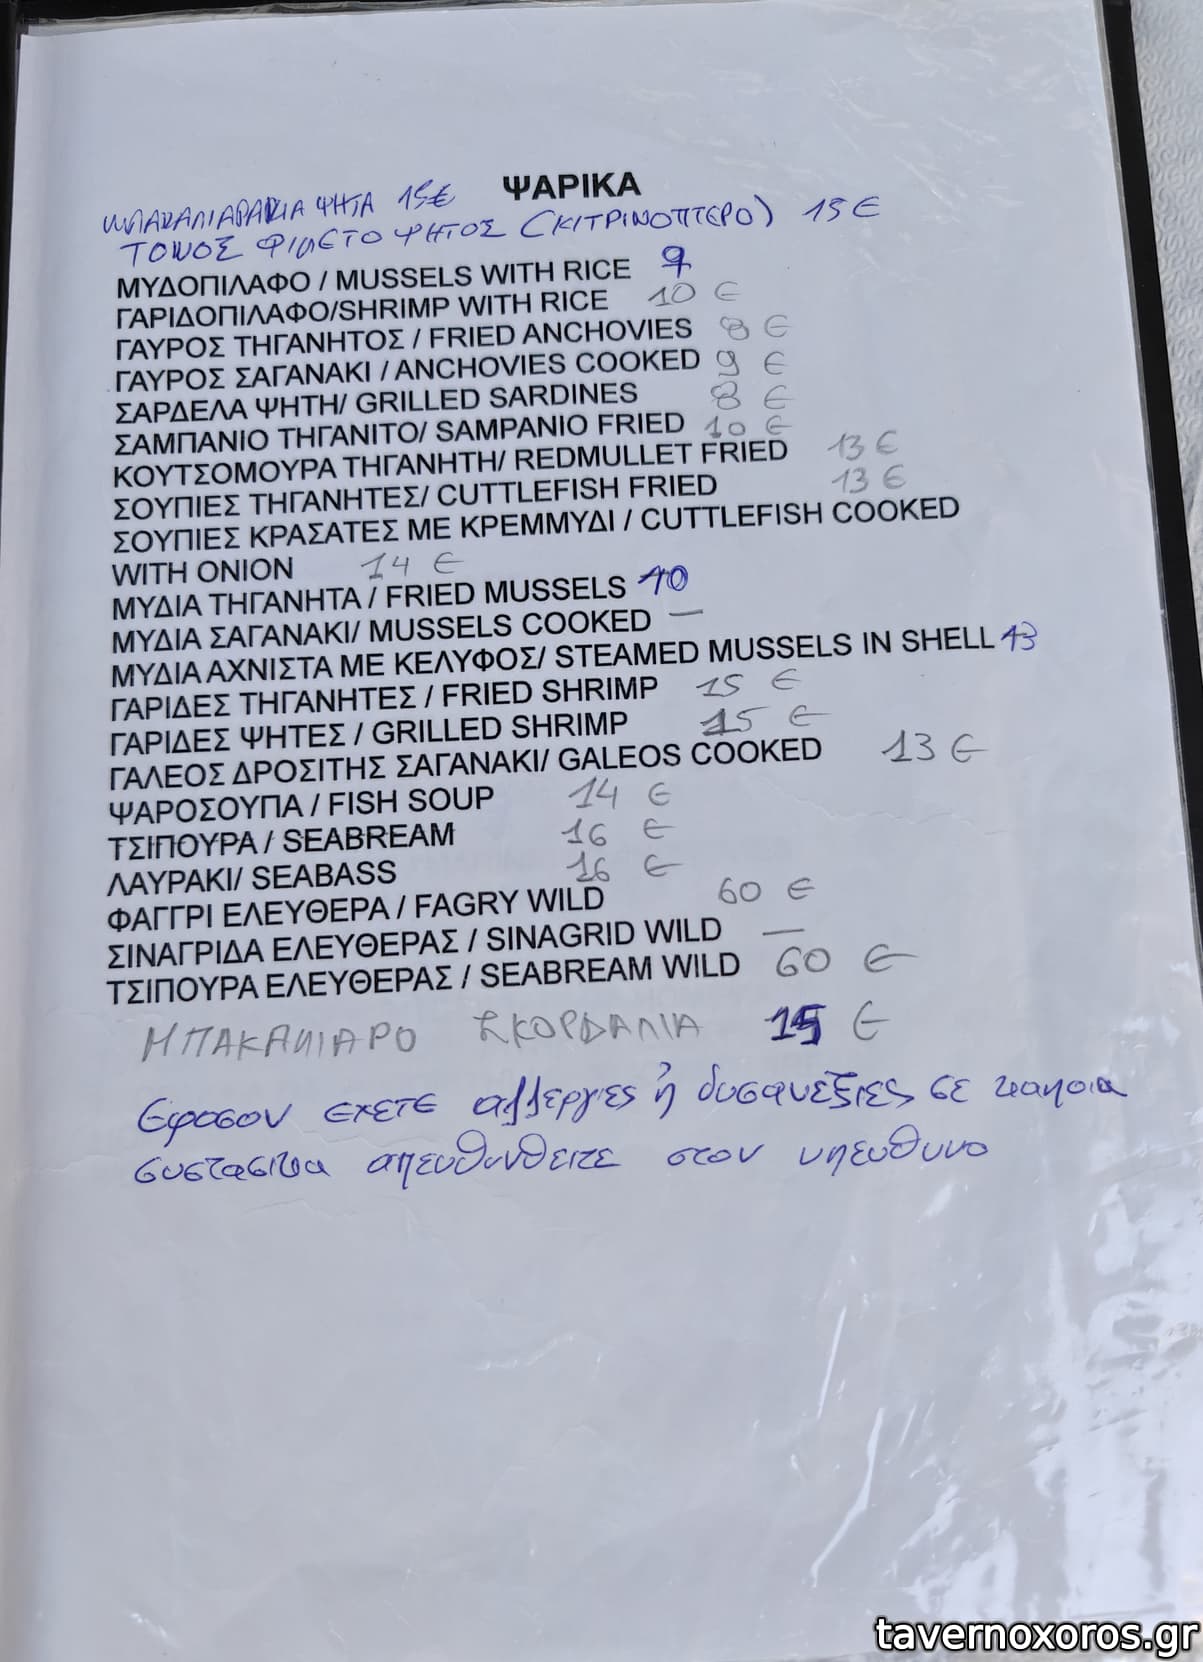 ΨΑΡΙΚΑ
ΜΠΑΚΑΛΙΑΡΑΚΙΑ ΨΗΤΑ 15€
ΤΟΝΟΣ ΦΙΛΕΤΟ ΨΗΤΟΣ (ΚΙΤΡΙΝΟΠΤΕΡΟ) 15€
ΜΥΔΟΠΙΛΑΦΟ / MUSSELS WITH RICE 9
ΓΑΡΙΔΟΠΙΛΑΦΟ/SHRIMP WITH RICE 10 €
ΓΑΥΡΟΣ ΤΗΓΑΝΗΤΟΣ / FRIED ANCHOVIES 8 €
ΓΑΥΡΟΣ ΣΑΓΑΝΑΚΙ / ANCHOVIES COOKED 9 €
ΣΑΡΔΕΛΑ ΨΗΤΗ/ GRILLED SARDINES 8 €
ΣΑΜΠΑΝΙΟ ΤΗΓΑΝΙΤΟ/ SAMPANIO FRIED 10 €
ΚΟΥΤΣΟΜΟΥΡΑ ΤΗΓΑΝΗΤΗ/ REDMULLET FRIED 13 €
ΣΟΥΠΙΕΣ ΤΗΓΑΝΗΤΕΣ/ CUTTLEFISH FRIED 13 €
ΣΟΥΠΙΕΣ ΚΡΑΣΑΤΕΣ ΜΕ ΚΡΕΜΜΥΔΙ / CUTTLEFISH COOKED
WITH ONION 14 €
ΜΥΔΙΑ ΤΗΓΑΝΗΤΑ / FRIED MUSSELS 10
ΜΥΔΙΑ ΣΑΓΑΝΑΚΙ/ MUSSELS COOKED —
ΜΥΔΙΑ ΑΧΝΙΣΤΑ ΜΕ ΚΕΛΥΦΟΣ/ STEAMED MUSSELS IN SHELL 13
ΓΑΡΙΔΕΣ ΤΗΓΑΝΗΤΕΣ / FRIED SHRIMP 15 €
ΓΑΡΙΔΕΣ ΨΗΤΕΣ / GRILLED SHRIMP 15 €
ΓΑΛΕΟΣ ΔΡΟΣΙΤΗΣ ΣΑΓΑΝΑΚΙ/ GALEOS COOKED 13 €
ΨΑΡΟΣΟΥΠΑ / FISH SOUP 14 €
ΤΣΙΠΟΥΡΑ / SEABREAM 16 €
ΛΑΥΡΑΚΙ/ SEABASS 16 €
ΦΑΓΓΡΙ ΕΛΕΥΘΕΡΑ / FAGRY WILD 60 €
ΣΙΝΑΓΡΙΔΑ ΕΛΕΥΘΕΡΑΣ / SINAGRID WILD —
ΤΣΙΠΟΥΡΑ ΕΛΕΥΘΕΡΑΣ / SEABREAM WILD 60 €
ΜΠΑΚΑΛΙΑΡΟ ΣΚΟΡΔΑΛΙΑ 15 €
Εφοσον εχετε αλλεργιες ή δυσανεξιες σε καποια
συστατικα απευθυνθειτε στον υπευθυνο
tavernoxoros.gr